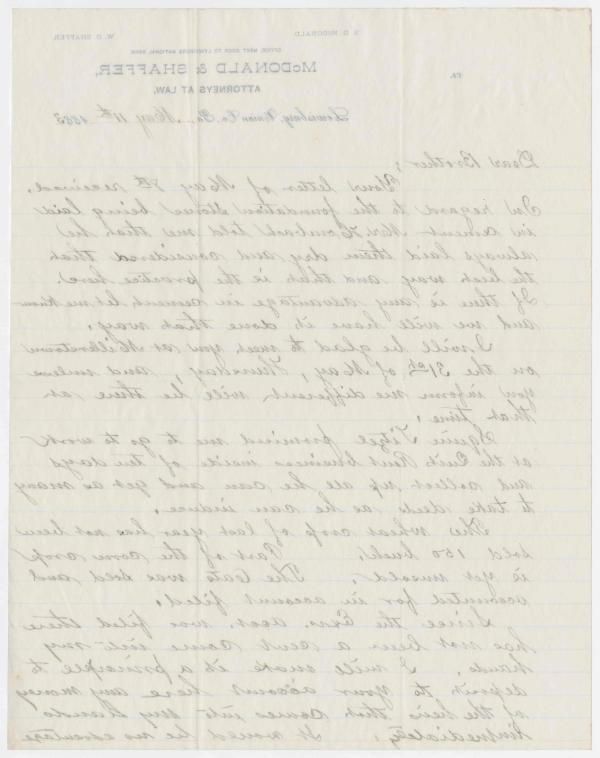 S. D. McDONALD W. O. SHAFFER.
OFFICE, NEXT DOOR TO LEWISBURG NATIONAL BANK
McDONALD & SHAFFER,
ATTORNEYS AT LAW,
Lewisburg, Union Co. Pa., May 11th 1883
Dear Brother;
Your letter of May 8th received.
In regard to the foundation stones being laid
in cement Mr. told me that he
always laid them dry and considered that
the best way and that is the practice here.
If there is any advantage in cement, let me know
and we will have it done that way.
I will be glad to meet you at Millerstown
on the 31st of May, Thursday, and unless
you inform me different, will be there at
that time.
Squire Titzel promised me to go to work
at the Quit Rent business inside of ten days
and collect up all he can and get as many
to take deeds as he can induce.
The wheat crop of last year has not been
sold 150 bush. Part of the corn crop
is yet unsold. The Oats was sold and
accounted for in account filed.
Since the Exrs. acct. was filed there
has not been a cent come into my
hands. I will make it a principle to
deposit to your account here any money
of the heirs that comes into my hands
immediately. It would be no advantage